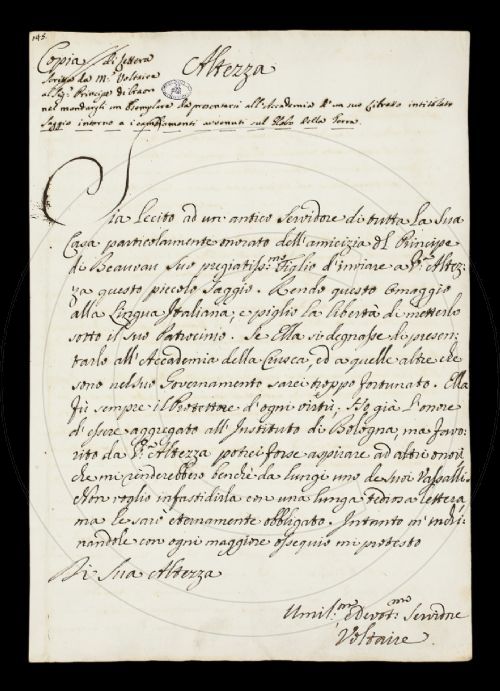 145.
Copia di lettera
scritta da Mr. Voltaire
al Sig.r Principe di Craon
nel mandargli un Esemplare da presentarsi all'Accademia d'un suo Libretto intitolato
Saggio intorno a i cambiamenti avvenuti sul Globo della Terra.
Altezza
Sia lecito ad un' antico Servidore di tutta la Sua
Casa particolarmente onorato dell'amicizia del Principe
di Beauvau Suo pregiatiss:mo Figlio d'inviare a V.a Altez-
za questo piccolo Saggio. Rendo questo omaggio
alla Lingua Italiana, e piglio la libertà di metterlo
sotto il Suo Patrocinio. Se Ella si degnasse di presen-
tarlo all'Accademia della Crusca, ed a quelle altre che
sono nel suo Governamento sarei troppo fortunato. Ella
fù sempre il Protettore d'ogni virtù. Ho già l'onore
d'essere aggregato all'Instituto di Bologna, ma favo-
rito da V.a Altezza potrei forse aspirare ad altri onori
che mi renderebbero benchè da lungi uno de suoi Vassalli.
Non voglio infastidirla con una lunga tediosa lettera
ma le sarò eternamente obbligato. Intanto m' inchi-
nandole con ogni maggiore ossequio mi protesto
Di Sua Altezza
Umil:mo e Devot:mo Servidore
Voltaire.